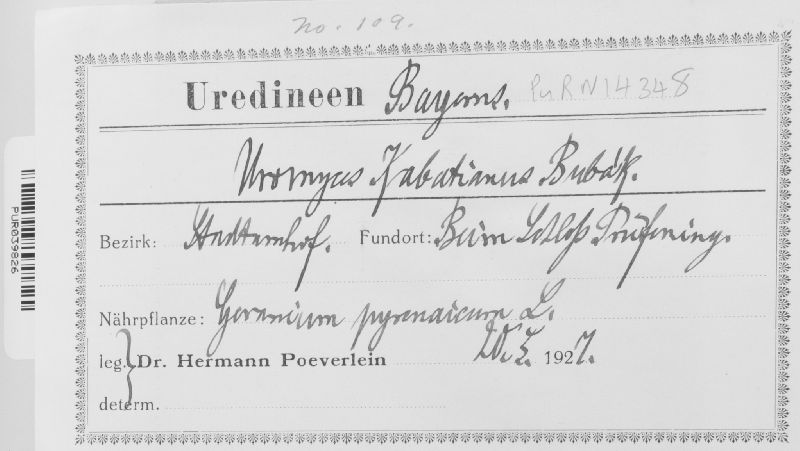 No. 109.
Uredineen Bayerns. PurN14348
Uromyces Kabatianus Bubák.
Bezirk: Stadtamhof. Fundort: Beim Schloß Prüfening.
Nährpflanze: Geranium pyrenaicum L.
leg. Dr. Hermann Poeverlein 1927.
determ.
PUR039826